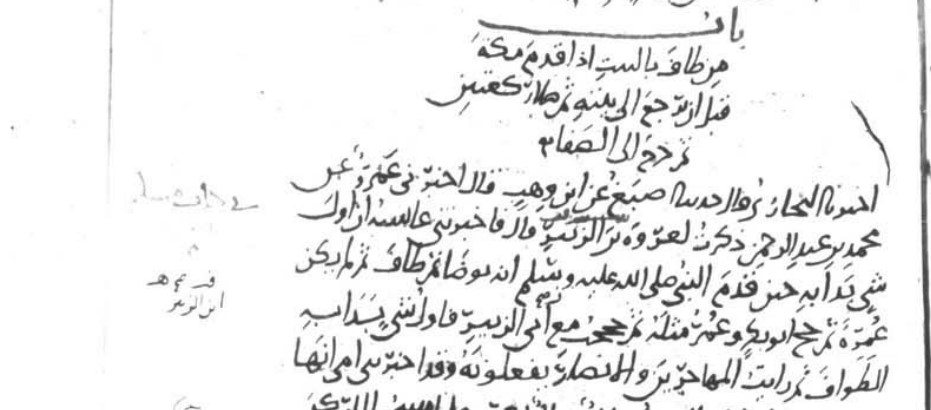 باب
من طاف بالبيت اذا قدم مكة
قبل ان يرجع الى بيته ثم صلى ركعتين
ثم خرج الى الصفا
اخبرنا البخاري قال حدثنا اصبغ عن ابن وهب قال اخبرني عمرو عن
محمد بن عبد الرحمن ذكرت لعروة بن الزبير قال فاخبرتني عائشة ان اول
شي بدا به حين قدم النبي صلى الله عليه وسلم انه توضا ثم طاف ثم لم يكن
عمرة ثم حج ابو بكر وعمر مثله ثم حججت مع ابي الزبير فاول شي بدا به
الطواف ثم رايت المهاجرين والانصار يفعلونه وقد اخبرتني امي انها
ابن الزبير